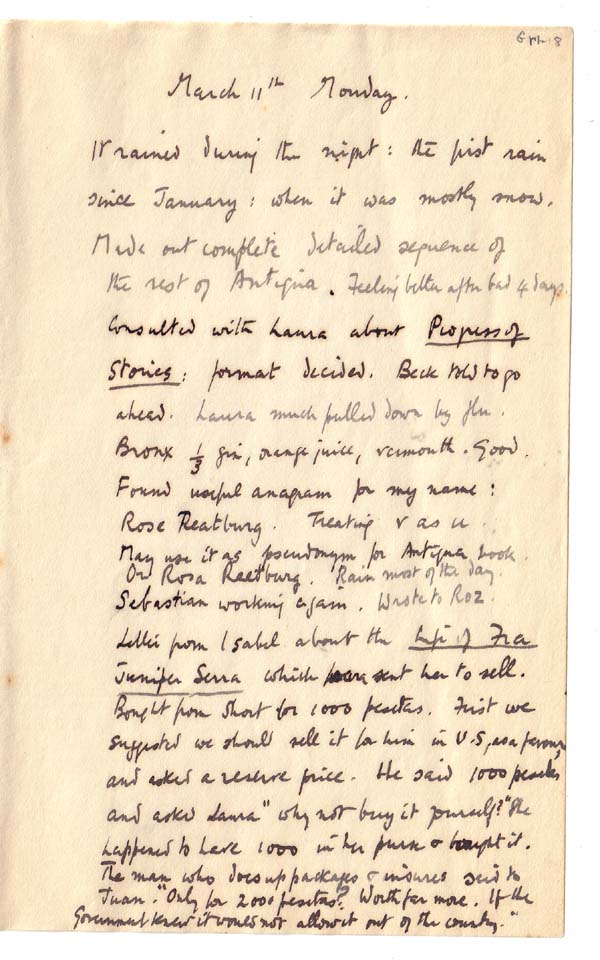 March 11th Monday.
It rained during the night: the first rain
since January: when it was mostly snow.
Made out complete detailed sequence of
the rest of Antigua. Feeling better after bad 4 days.
Consulted with Laura about Progress of
Stories: format decided. Beck told to go
ahead. Laura much pulled down by flu.
Bronx 1/3 gin, orange juice, vermouth. Good.
Found useful anagram for my name:
Rose Reatburg. Treating v as u.
May use it as pseudonym for Antigua book.
Or Rosa Reetburg. Rain most of the day.
Sebastian working again. Wrote to Roz.
Letter from Isabel about the Life of Fra
Juniper Serra which sent her to sell.
Bought from Short for 1000 pesetas. First we
suggested we should sell it for him in U.S, as a favour,
and asked a reserve price. He said 1000 pesetas
and asked Laura "why not buy it yourself?" She
happened to have 1000 in her purse & bought it.
The man who does up packages & insures said to
Juan: "Only for 2000 pesetas? Worth far more. If the
Government knew it would not allow it out of the country."